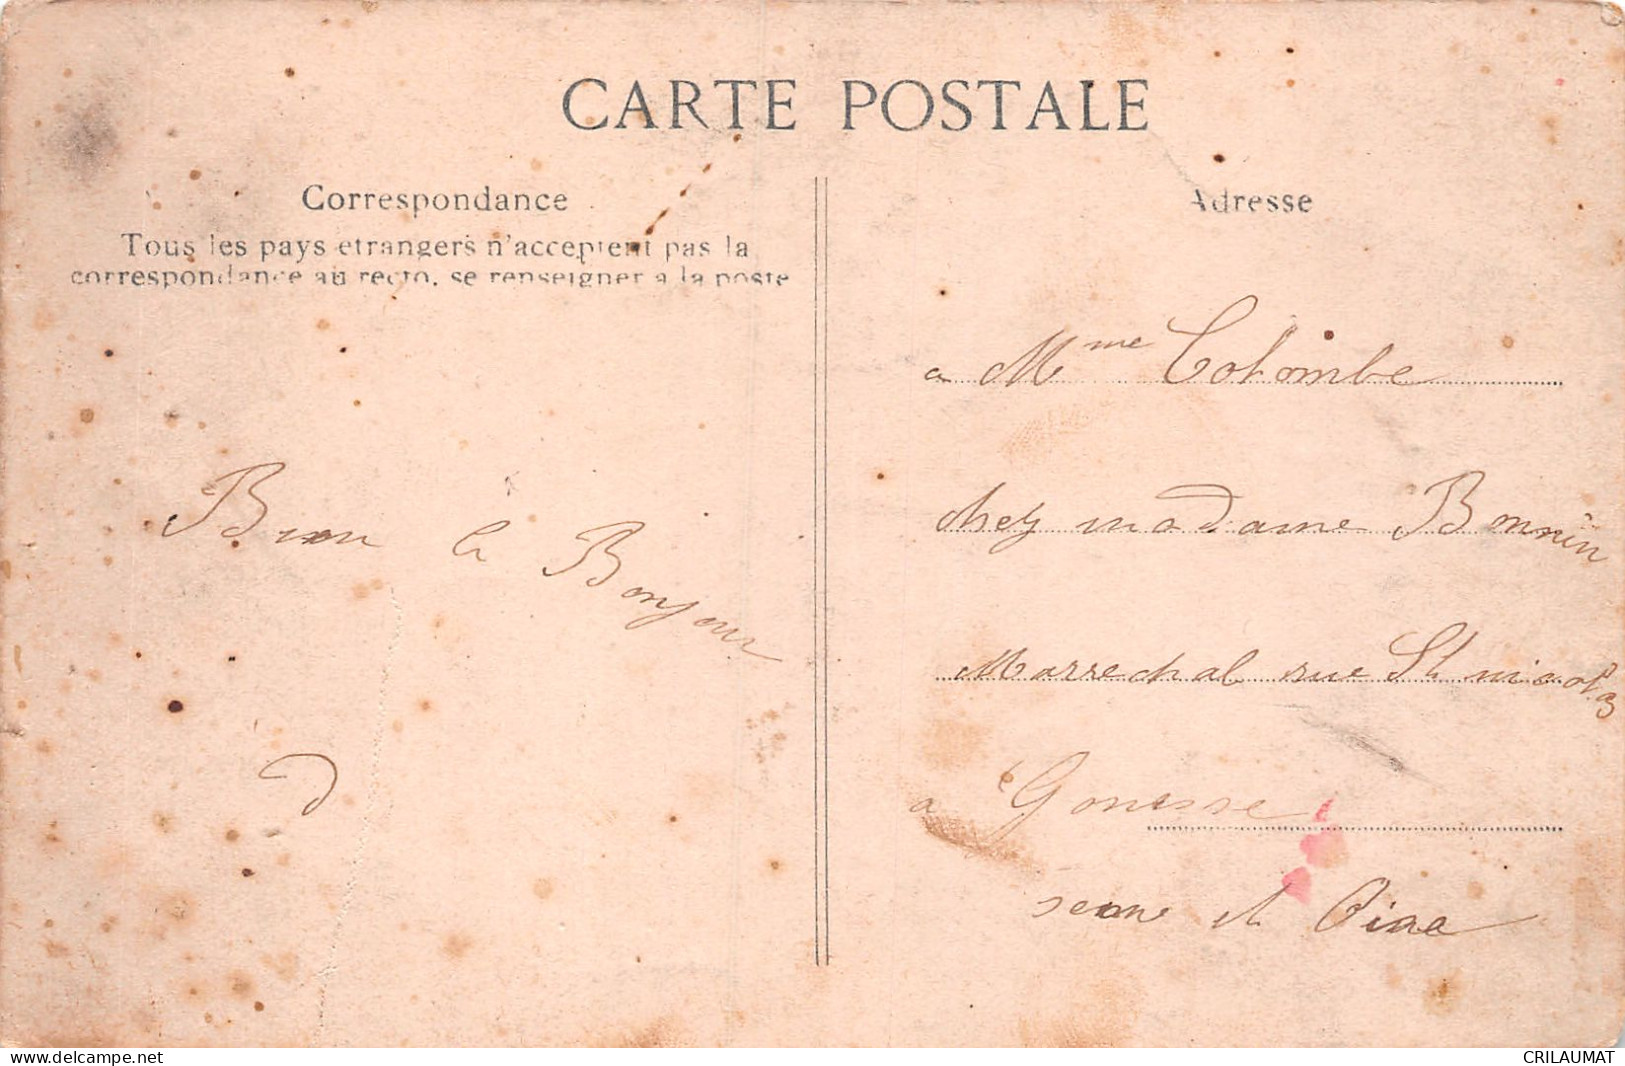 CARTE POSTALE
Correspondance
Tous les pays etrangers n'acceptent pas la
correspondance au recto, se renseigner a la poste
Bien le Bonjour
D
Adresse
a Mme Colombe
chez madame Bonnin
Marrechal rue St nicolas
a Gonesse
seine et Oise
www.delcampe.net
CRILAUMAT